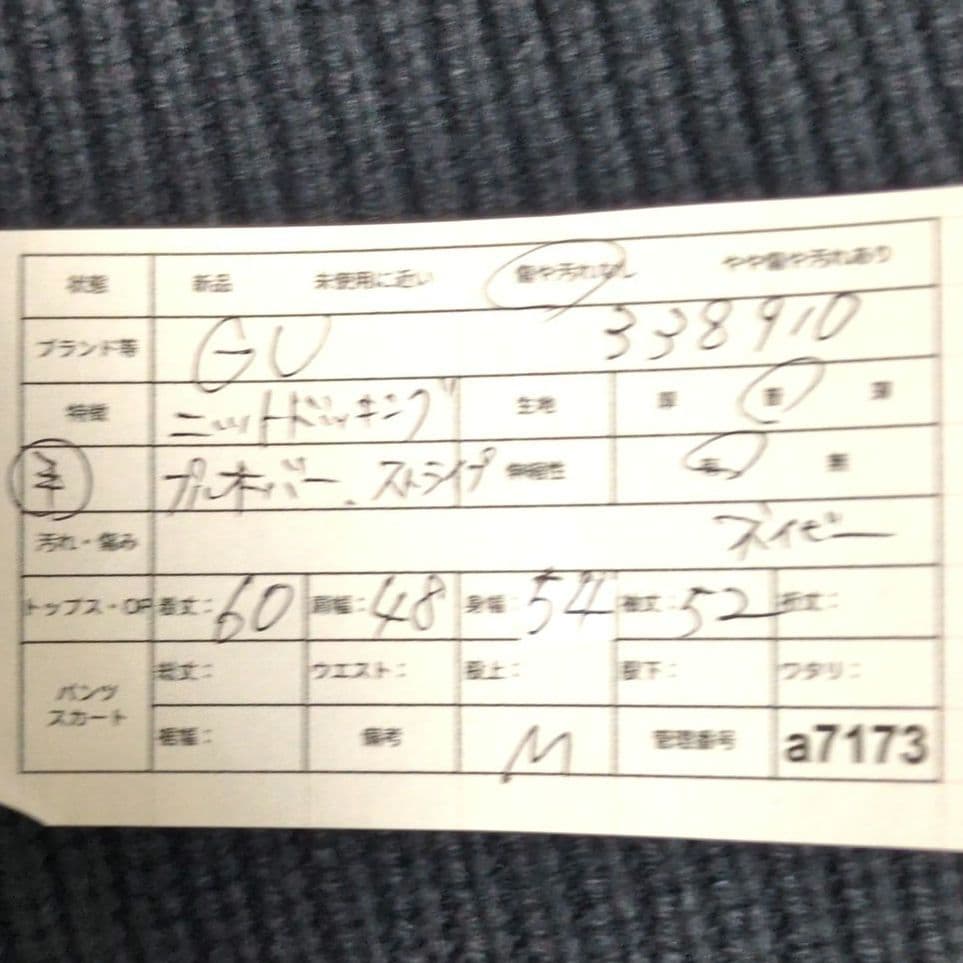 状態 新品 未使用に近い 傷や汚れなし やや傷や汚れあり
ブランド等 GU 338910
特徴 ニットドッキング 生地 厚 普 薄
プルオーバー、ストライプ 伸縮性 有 無
汚れ・傷み ネイビー
トップス・OP 着丈：60 肩幅：48 身幅：54 袖丈：52 裄丈：
パンツ スカート 総丈： ウエスト： 股上： 股下： ワタリ：
裾幅： 備考 M 管理番号 a7173